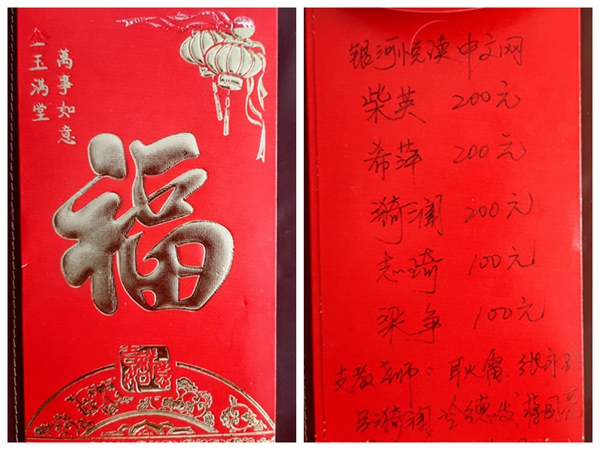 萬事如意
玉满堂
福
银河悦读中文网
柴英 200元
希萍 200元
漪澜 200元
志琦 100元
梁争 100元
支教老师：耿雷 张永
吕漪澜